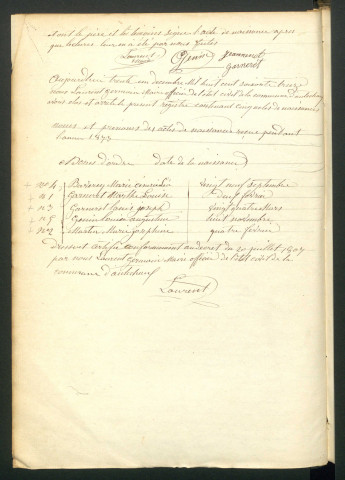 et ont le père et les témoins signé l'acte de naissance après
que lecture leur en a été par nous faite
Laurent maire Genin Jeanneret
Garneret
Aujourd'hui trente un decembre Mil huit cent soixante treize
nous Laurent germain Maire officier de l'etat civil de la commune
avons clos et arrêté le present registre contenant cinq actes de naissances
noms et prenoms des actes de naissance reçus pendant
l'année 1873
Nos d'ordre Date de la naissance
no 4 Marie vingt neuf Septembre
no 1 Garneret Marthe Louise deux fevrier
no 3 Garneret Louis joseph vingt quatre Mars
no 5 Genin Louise augustine huit novembre
no 2 Martin Marie Josephine quatre fevrier
Dressé et certifié conformement au decret du 20 juillet 1807
par nous Laurent germain Maire officier de l'etat civil de la
commune d'autechaux
Laurent